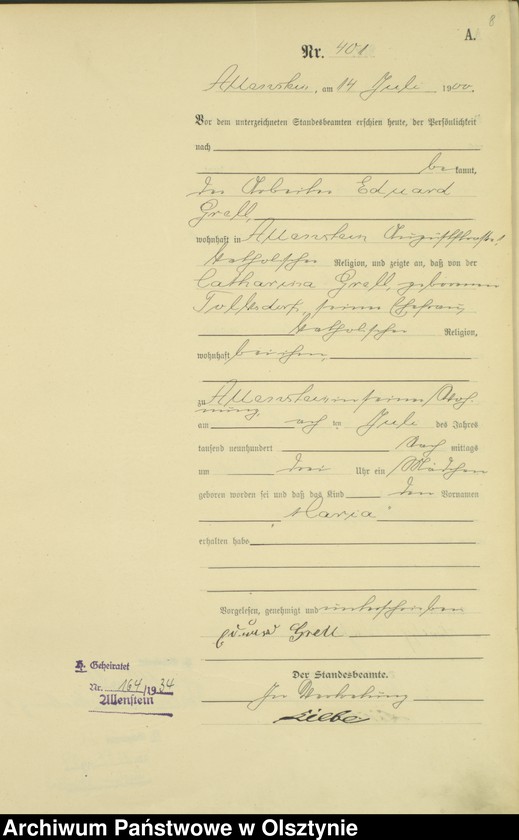 8
A.
Nr. 401
Allenstein, am 14 Juli 1900.
Vor dem unterzeichneten Standesbeamten erschien heute, der Persönlichkeit
nach
bekannt,
der Arbeiter Eduard
Grell,
wohnhaft in Allenstein
katholischer Religion, und zeigte an, daß von der
Catharina Grell, geborenen
seiner Ehefrau,
katholischer Religion,
wohnhaft bei ihm,
zu Allenstein in seiner Woh-
nung,
am ten Juli des Jahres
tausend neunhundert Nach mittags
um drei Uhr ein Mädchen
geboren worden sei und daß das Kind den Vornamen
"Maria"
erhalten habe
Vorgelesen, genehmigt und unterschrieben
Eduard Grell
Der Standesbeamte.
In Vertretung
H. Geheiratet
Nr. 164/1934
Allenstein
Archiwum Państwowe w Olsztynie